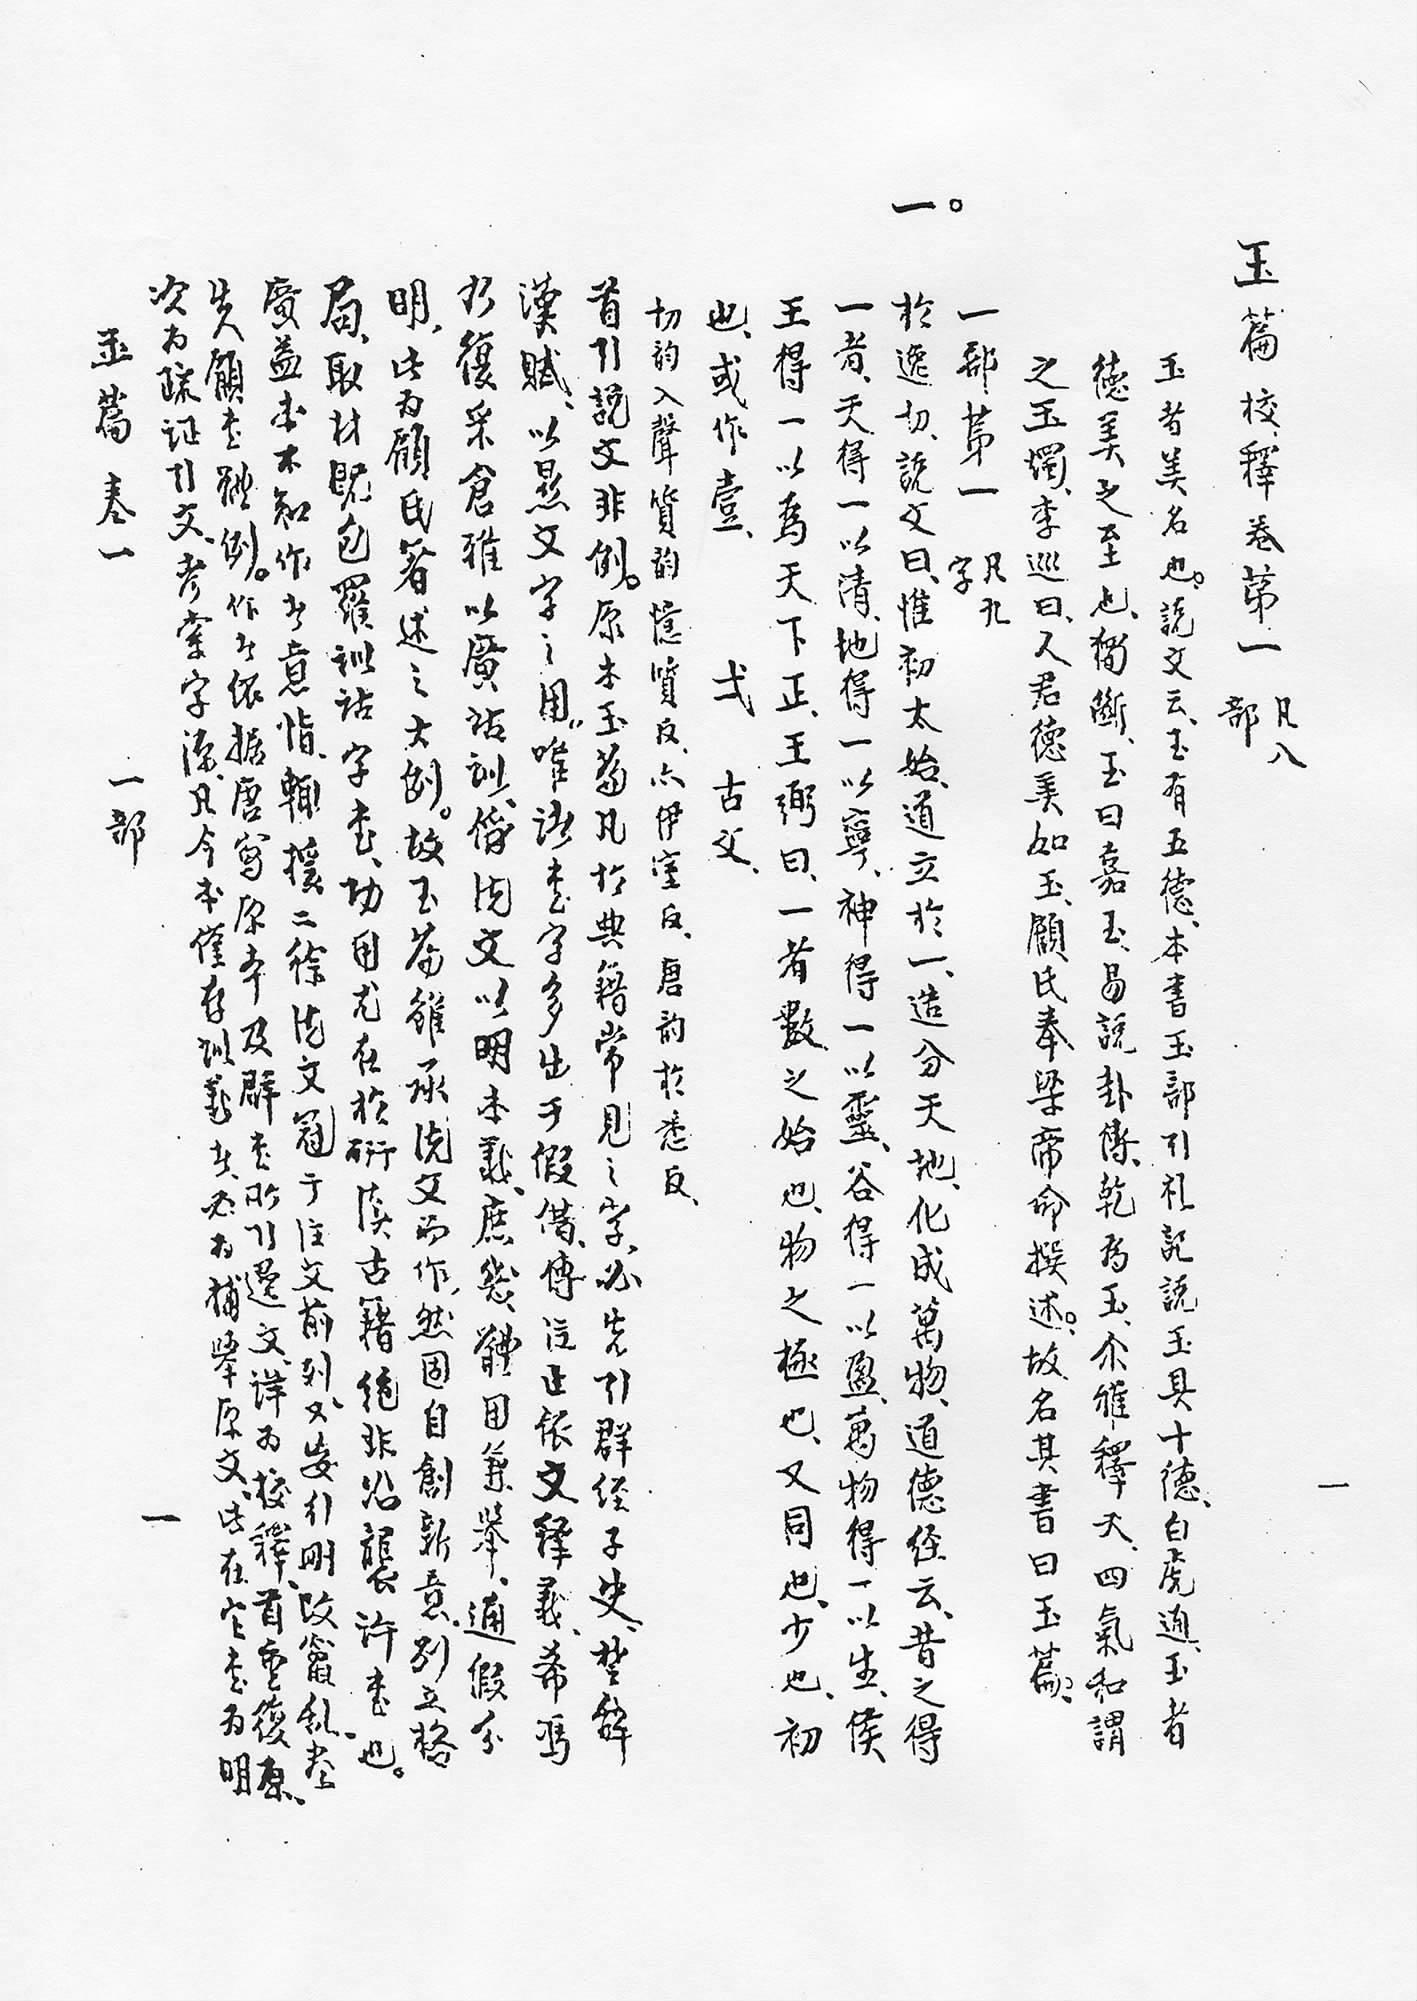 玉篇校釋卷第一 凡八部
玉者美名也。說文云、玉有五德、本書玉部引礼記說玉具十德、白虎通、玉者
德美之至也、獨斷、玉曰嘉玉、易說卦傳、乾为玉、尒雅釋天、四氣和謂
之玉燭、李巡曰、人君德美如玉、顧氏奉梁帝命撰述。故名其書曰玉篇、
一部第一 凡九字
一。於逸切、說文曰、惟初太始、道立於一、造分天地、化成萬物、道德经云、昔之得
一者、天得一以清、地得一以寧、神得一以靈、谷得一以盈、萬物得一以生、侯
王得一以為天下正、王弼曰、一者數之始也、物之極也、又同也、少也、初
也、或作壹、 弌 古文、
切韵入聲質韵憶質反、六伊室反、唐韵於悉反、
首引說文非例。原本玉篇凡於典籍常見之字、必先引群经子史、楚辞
漢賦、以显文字之用。唯諸书字多出于假借、傳注止依文释義、希馮
乃復采倉雅以廣詁訓、俻说文以明本義、庶幾體用兼举、通假分
明、此为顧氏著述之大例。故玉篇雖承说文而作、然固自創新意、别立格
局、取材既包羅訓詁字书、功用尤在於研读古籍绝非沿襲许书也。
廣益本不知作者意恉、輒援二徐说文冠于注文前列、又妄引刪改竄乱、尽
失顧书體例。作者依据唐写原本及群书所引遗文、详为校釋、首重復原、
次为疏证引文、考索字源、凡今本僅存訓義者、必为補举原文、其在它书为明
玉篇 卷一 一部 一
一